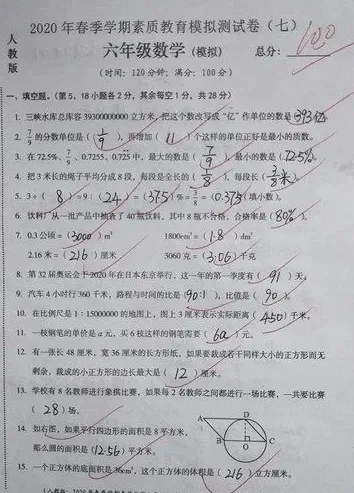 人教版
2020年春季学期素质教育模拟测试卷(七)
六年级数学(模拟) 总分: 100
(时间:120分钟;满分:100分)
一、填空题。(第5、18小题各2分,其余每空1分,共28分)
1. 三峡水库总库容39300000000立方米,把这个数改写成“亿”作单位的数是(393亿
2. 7/9的分数单位是(1/9),再增加(11)个这样的单位正好是最小的质数。
3. 在72.5%、7/9、0.7255、0.725中,最大的数是(7/9),最小的数是(72.5%)。
4. 把3米长的绳子平均分成8段,每段是全长的(1/8),每段长(3/8米)。
5. 3÷(8)=9:(24)=(37.5)%=3/8=(0.375)(填小数)。
6. 饮料厂从一批产品中抽查了40瓶饮料,其中8瓶不合格,合格率是(80%)。
7. 0.3公顷=(3000)m² 1800cm³=(1.8)dm³
2.16米=(216)厘米 3060克=(3.06)千克
8. 第32届奥运会于2020年在日本东京举行,这一年的第一季度有(91)天。
9. 汽车4小时行360千米,路程与时间的比是(90:1),比值是(90)。
10. 在比例尺是1:15000000的地图上,图上3厘米表示实际距离(450)千米。
11. 一枝钢笔的单价是a元,买6枝这样的钢笔需要(6a)元。
12. 有一张长48厘米,宽36厘米的长方形纸,如果要裁成若干同样大小的正方形而无
剩余,裁成的小正方形的边长最大是(12)厘米。
13. 学校有8名教师进行象棋比赛,如果每2名教师之间都进行一场比赛,一共要比赛
(28)场。
14. 如右图,如果平行四边形的面积是8平方米,
那么圆的面积是(12.56)平方米。
A D
B O C
15. 一个正方体的底面积是36cm²,这个正方体的体积是(216)立方厘米。